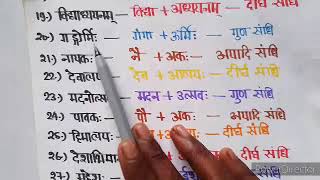 19) विद्याध्ययनम् — विद्या + अध्ययनम् — दीर्घ संधि
20) गङ्गोर्मिः — गंगा + ऊर्मिः — गुण संधि
21) नायकः — नै + अकः — अयादि संधि
22) देवालयः — देव + आलयः — दीर्घ संधि
23) मदनोत्सवः — मदन + उत्सवः — गुण संधि
24) पावकः — पौ + अकः — अयादि संधि
25) हिमालयः — दीर्घ संधि
26) देशाधि — दीर्घ संधि
27)